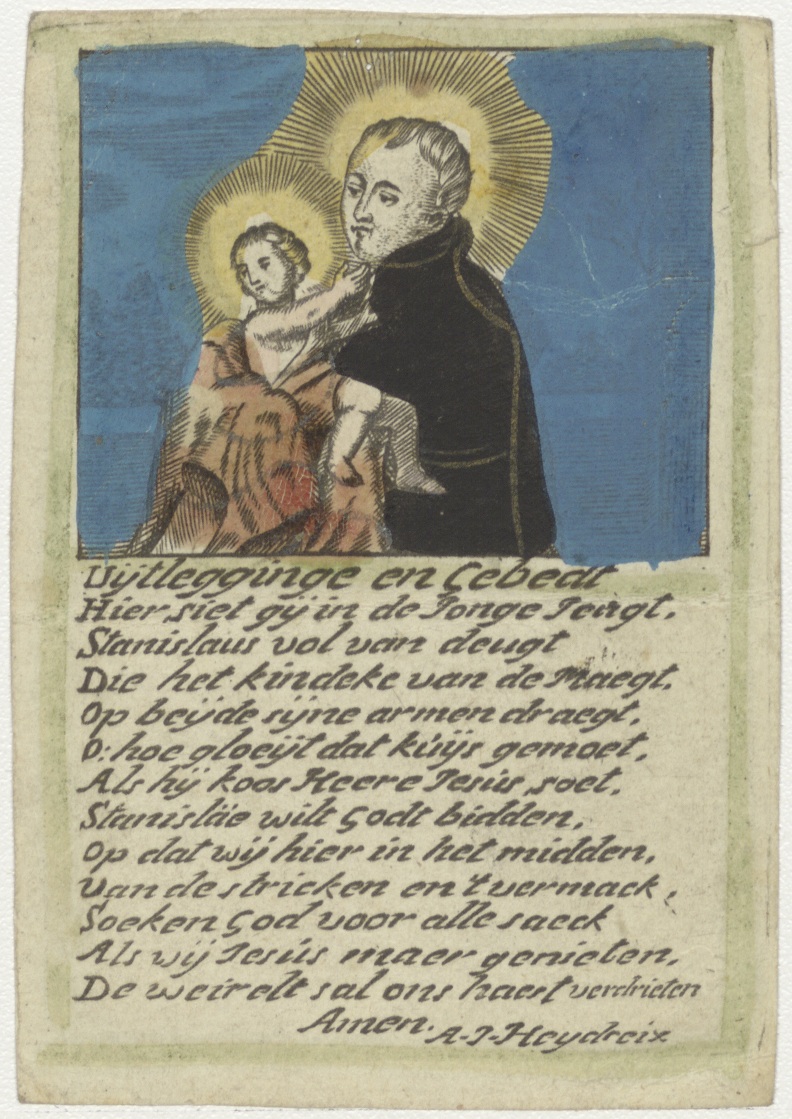 Uijtlegginge en Gebedt
Hier siet gij in de Jonge Jeugt,
Stanislaus vol van deugt
Die het kindeke van de Maegt,
Op beijde sijne armen draegt,
O: hoe gloeijt dat kuijs gemoet,
Als hij koos Heere Jesús soet,
Stanisläe wilt Godt bidden,
Op dat wij hier in het midden,
Van de stricken en 't vermack,
Soeken God voor alle saeck
Als wij Jesús maer genieten,
De weirelt sal ons haest verdrieten
Amen. A-J-Heydreix